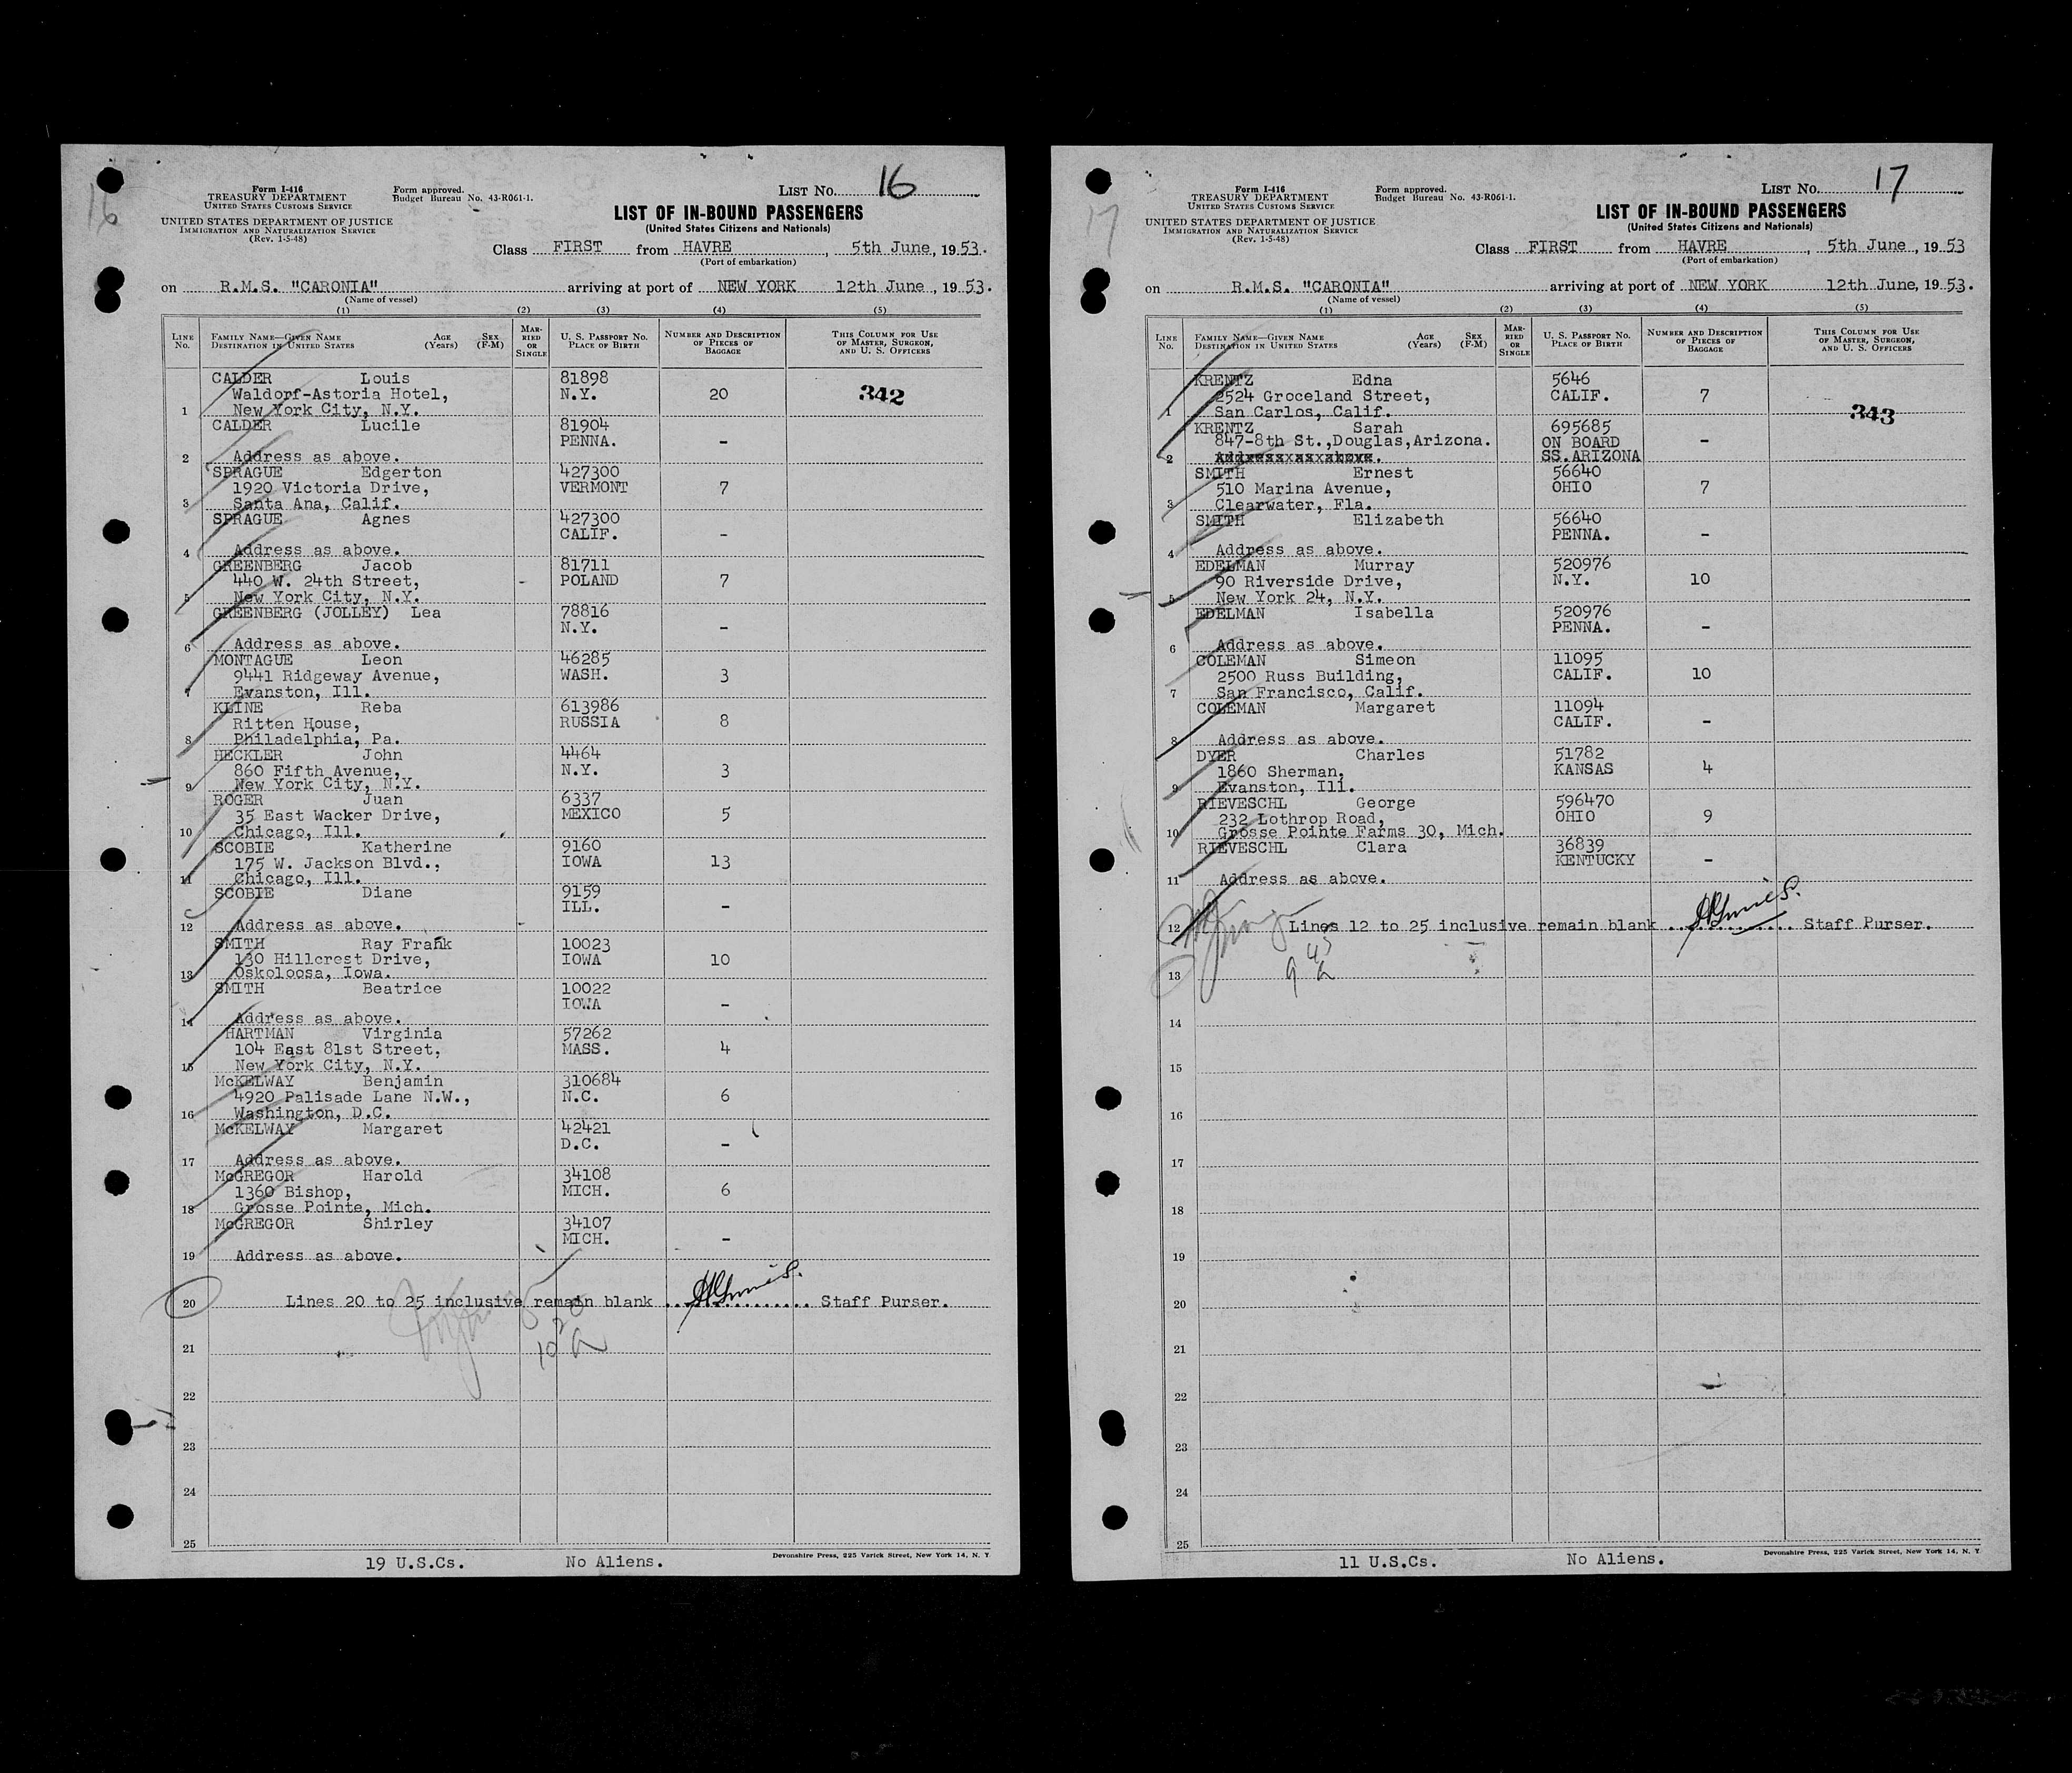 16
Form I-416
TREASURY DEPARTMENT
UNITED STATES CUSTOMS SERVICE
UNITED STATES DEPARTMENT OF JUSTICE
IMMIGRATION AND NATURALIZATION SERVICE
(Rev. 1-5-48)
Form approved.
Budget Bureau No. 43-R061-1.
LIST NO. 16
LIST OF IN-BOUND PASSENGERS
(United States Citizens and Nationals)
Class FIRST from HAVRE, 5th June, 1953.
(Port of embarkation)
on R.M.S. "CARONIA" arriving at port of NEW YORK 12th June, 1953.
(Name of vessel)
(1) (2) (3) (4) (5)
LINE NO. FAMILY NAME—GIVEN NAME DESTINATION IN UNITED STATES AGE (Years) SEX (F-M) MARRIED OR SINGLE U. S. PASSPORT NO. PLACE OF BIRTH NUMBER AND DESCRIPTION OF PIECES OF BAGGAGE THIS COLUMN FOR USE OF MASTER, SURGEON, AND U. S. OFFICERS
CALDER Louis 81898
Waldorf-Astoria Hotel, N.Y. 20 342
1 New York City, N.Y.
CALDER Lucile 81904
PENNA. -
2 Address as above.
SPRAGUE Edgerton 427300
1920 Victoria Drive, VERMONT 7
3 Santa Ana, Calif.
SPRAGUE Agnes 427300
CALIF. -
4 Address as above.
GREENBERG Jacob 81711
440 W. 24th Street, - POLAND 7
5 New York City, N.Y.
GREENBERG (JOLLEY) Lea 78816
N.Y. -
6 Address as above.
MONTAGUE Leon 46285
9441 Ridgeway Avenue, WASH. 3
7 Evanston, Ill.
KLINE Reba 613986
Ritten House, RUSSIA 8
8 Philadelphia, Pa.
HECKLER John 4464
860 Fifth Avenue, N.Y. 3
9 New York City, N.Y.
ROGER Juan 6337
35 East Wacker Drive, MEXICO 5
10 Chicago, Ill.
SCOBIE Katherine 9160
175 W. Jackson Blvd., IOWA 13
11 Chicago, Ill.
SCOBIE Diane 9159
ILL. -
12 Address as above.
SMITH Ray Frank 10023
130 Hillcrest Drive, IOWA 10
13 Oskoloosa, Iowa.
SMITH Beatrice 10022
IOWA -
14 Address as above.
HARTMAN Virginia 57262
104 East 81st Street, MASS. 4
15 New York City, N.Y.
McKELWAY Benjamin 310684
4920 Palisade Lane N.W., N.C. 6
16 Washington, D.C.
McKELWAY Margaret 42421
D.C. -
17 Address as above.
McGREGOR Harold 34108
1360 Bishop, MICH. 6
18 Grosse Pointe, Mich.
McGREGOR Shirley 34107
MICH. -
19 Address as above.
20 Lines 20 to 25 inclusive remain blank ............ Staff Purser.
21
22
23
24
25
19 U.S.Cs. No Aliens.
Devonshire Press, 225 Varick Street, New York 14, N. Y.
17
Form I-416
TREASURY DEPARTMENT
UNITED STATES CUSTOMS SERVICE
UNITED STATES DEPARTMENT OF JUSTICE
IMMIGRATION AND NATURALIZATION SERVICE
(Rev. 1-5-48)
Form approved.
Budget Bureau No. 43-R061-1.
LIST NO. 17
LIST OF IN-BOUND PASSENGERS
(United States Citizens and Nationals)
Class FIRST from HAVRE, 5th June, 1953
(Port of embarkation)
on R.M.S. "CARONIA" arriving at port of NEW YORK 12th June, 1953.
(Name of vessel)
(1) (2) (3) (4) (5)
LINE NO. FAMILY NAME—GIVEN NAME DESTINATION IN UNITED STATES AGE (Years) SEX (F-M) MARRIED OR SINGLE U. S. PASSPORT NO. PLACE OF BIRTH NUMBER AND DESCRIPTION OF PIECES OF BAGGAGE THIS COLUMN FOR USE OF MASTER, SURGEON, AND U. S. OFFICERS
KRENTZ Edna 5646
2524 Groceland Street, CALIF. 7
1 San Carlos, Calif. 343
KRENTZ Sarah 695685
847-8th St.,Douglas,Arizona. ON BOARD -
2 Address as above. SS.ARIZONA
SMITH Ernest 56640
510 Marina Avenue, OHIO 7
3 Clearwater, Fla.
SMITH Elizabeth 56640
PENNA. -
4 Address as above.
EDELMAN Murray 520976
90 Riverside Drive, N.Y. 10
5 New York 24, N.Y.
EDELMAN Isabella 520976
PENNA. -
6 Address as above.
COLEMAN Simeon 11095
2500 Russ Building, CALIF. 10
7 San Francisco, Calif.
COLEMAN Margaret 11094
CALIF. -
8 Address as above.
DYER Charles 51782
1860 Sherman, KANSAS 4
9 Evanston, Ill.
RIEVESCHL George 596470
232 Lothrop Road, OHIO 9
10 Grosse Pointe Farms 30, Mich.
RIEVESCHL Clara 36839
KENTUCKY -
11 Address as above.
12 Lines 12 to 25 inclusive remain blank ............ Staff Purser.
13
14
15
16
17
18
19
20
21
22
23
24
25
11 U.S.Cs. No Aliens.
Devonshire Press, 225 Varick Street, New York 14, N. Y.